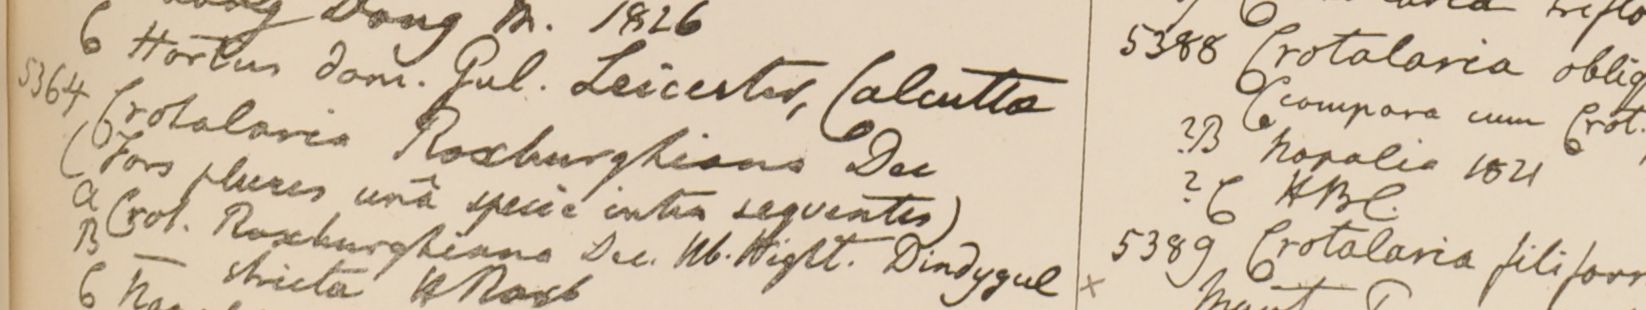 Dong M. 1826
C Hortus dom. Gul. Leicester, Calcutta
5364 Crotalaria Roxburghiana Dec
(Fors plures unâ specie inter sequentes)
a Crot. Roxburghiana Dec. Hb. Wight. Dindygul
B — stricta H Roxb
C
5388 Crotalaria obliq
(compara cum Crot.
?B Napalia 1821
? C HBC.
5389 Crotalaria filiform
x